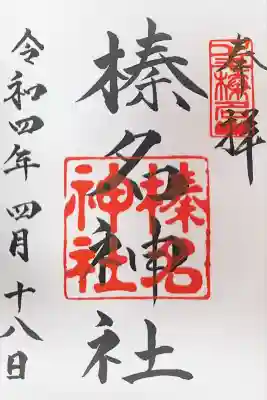 奉拝
榛名神社
榛名
神社
令和四年 四月 十八日